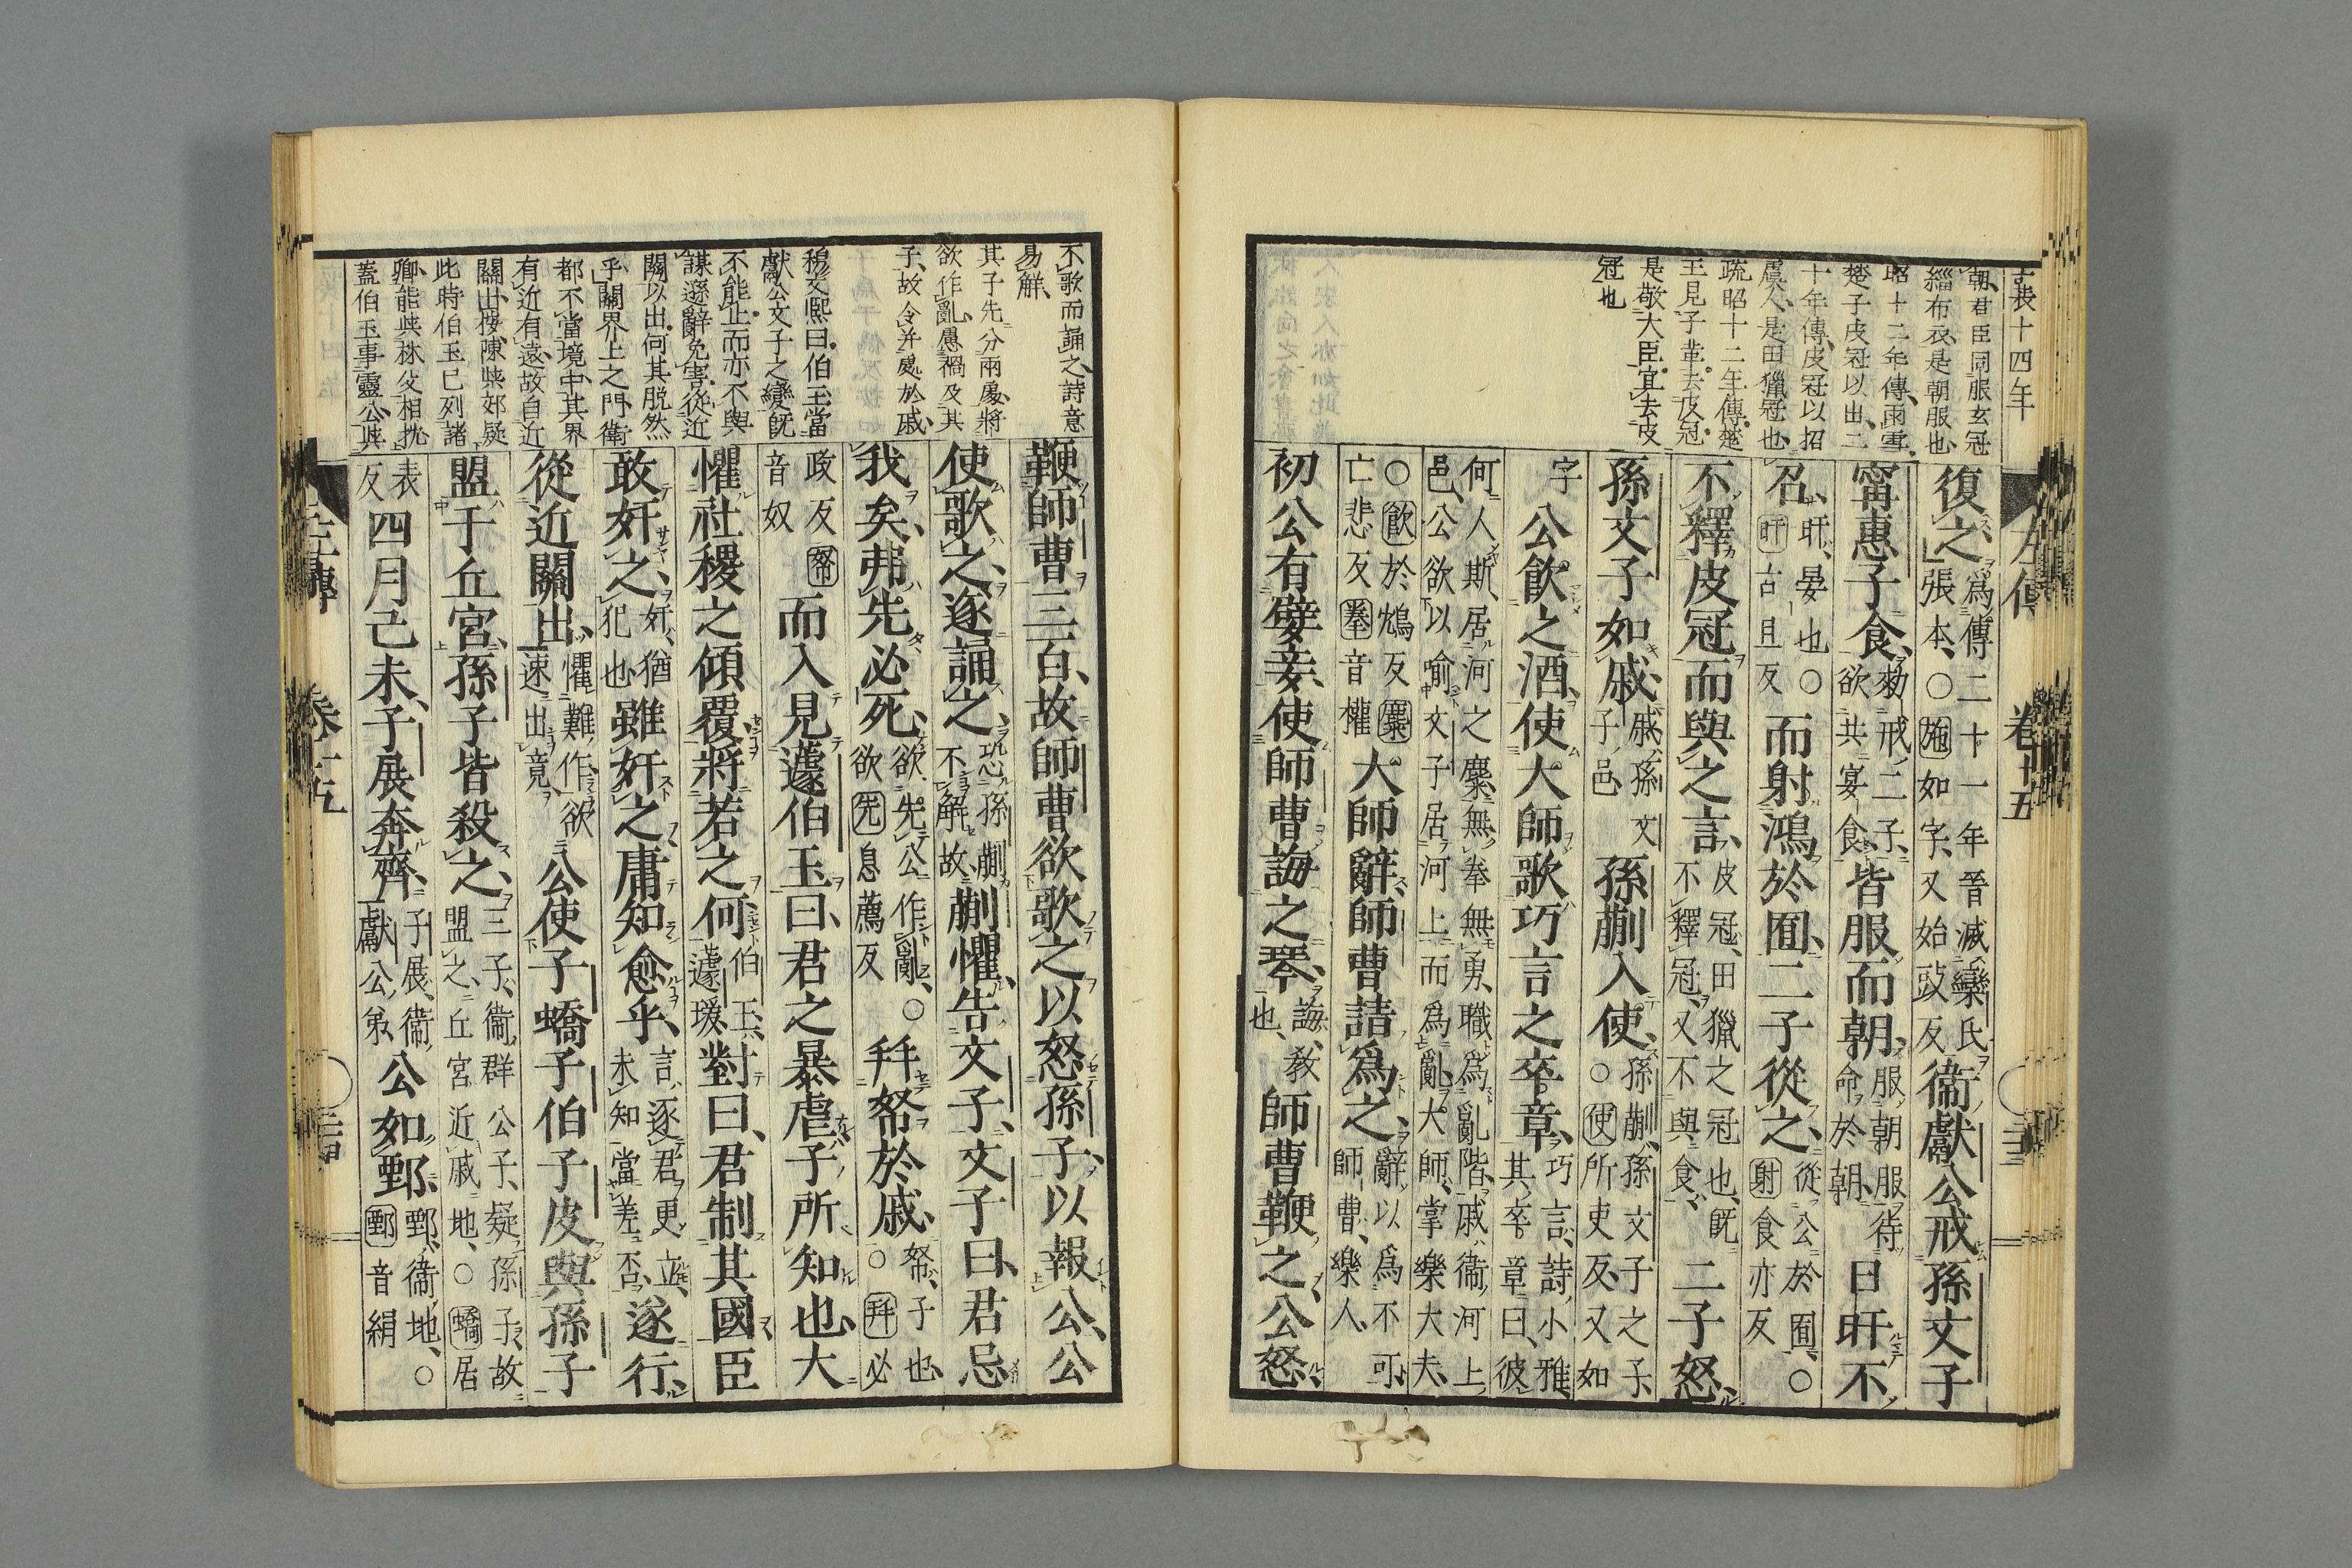 襄十四年
朝君臣同服玄冠
緇布衣是朝服也
昭十二年傳雨雪
楚子皮冠以出二
十年傳皮冠以招
虞人是田獵冠也
疏昭十二年傳楚
王見子革去皮冠
是敬大臣宜去皮
冠也
左傳 卷十五
復之為傳二十一年晉滅欒氏張本○施如字又始豉反衞獻公戒孫文子
甯惠子食勑戒二子欲共宴食皆服而朝服朝服待命於朝日旰不
召旰晏也○旰古旦反而射鴻於囿二子從之從公於囿○射食亦反
不釋皮冠而與之言皮冠田獵之冠也既不釋冠又不與食二子怒
孫文子如戚戚孫文子邑孫蒯入使孫蒯孫文子之子○使所吏反又如
字公飲之酒使大師歌巧言之卒章巧言詩小雅其卒章曰彼
何人斯居河之麋無拳無勇職為亂階戚衞河上邑公欲以喻文子居河上而為亂大師掌樂大夫
○飲於鴆反麋亡悲反拳音權大師辭師曹請為之辭以為不可師曹樂人
初公有嬖妾使師曹誨之琴誨教也師曹鞭之公怒
不歌而誦之詩意
易解
其子先分兩處將
欲作亂慮禍及其
子故令并處於戚
穆文熙曰伯玉當
獻公文子之變既
不能止而亦不與
謀遜辭免害從近
關以出何其脱然
乎關界上之門衞
都不當境中其界
有近有遠故自近
關出按陳傑郊疑
此時伯玉已列諸
卿能與林父相抗
蓋伯玉事靈公與
鞭師曹三百故師曹欲歌之以怒孫子以報公公
使歌之遂誦之恐孫蒯不解故蒯懼告文子文子曰君忌
我矣弗先必死欲先公作亂欲先息薦反○幷帑於戚帑子也○幷必
政反帑音奴而入見蘧伯玉曰君之暴虐子所知也大
懼社稷之傾覆將若之何伯玉蘧瑗對曰君制其國臣
敢奸之奸猶犯也雖奸之庸知愈乎言逐君更立未知當差否遂行
從近關出懼難作欲速出竟公使子蟜子伯子皮與孫子
盟于丘宮孫子皆殺之三子衞群公子疑孫子故盟之丘宮近戚地○蟜居
表反四月己未子展奔齊子展衞獻公弟公如鄄鄄衞地○鄄音絹
左傳 卷十五